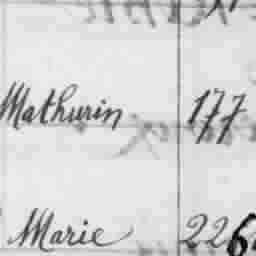 Mathurin 177
Marie 226